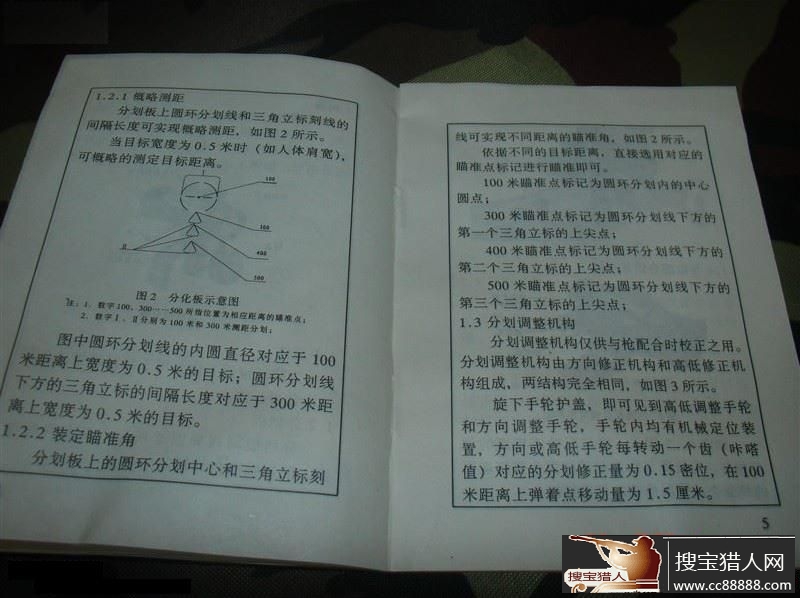 1.2.1 概略测距
分划板上圆环分划线和三角立标刻线的
间隔长度可实现概略测距，如图 2 所示。
当目标宽度为 0.5 米时（如人体肩宽），
可概略的测定目标距离。
100
300
400
500
II
图 2 分化板示意图
注：1、数字 100、300……500 所指位置为相应距离的瞄准点；
2、数字 I 、II 分别为 100 米和 300 米测距分划；
图中圆环分划线的内圆直径对应于 100
米距离上宽度为 0.5 米的目标；圆环分划线
下方的三角立标的间隔长度对应于 300 米距
离上宽度为 0.5 米的目标。
1.2.2 装定瞄准角
分划板上的圆环分划中心和三角立标刻
线可实现不同距离的瞄准角，如图 2 所示。
依据不同的目标距离，直接选用对应的
瞄准点标记进行瞄准即可。
100 米瞄准点标记为圆环分划内的中心
圆点；
300 米瞄准点标记为圆环分划线下方的
第一个三角立标的上尖点；
400 米瞄准点标记为圆环分划线下方的
第二个三角立标的上尖点；
500 米瞄准点标记为圆环分划线下方的
第三个三角立标的上尖点；
1.3 分划调整机构
分划调整机构仅供与枪配合时校正之用。
分划调整机构由方向修正机构和高低修正机
构组成，两结构完全相同，如图 3 所示。
旋下手轮护盖，即可见到高低调整手轮
和方向调整手轮，手轮内均有机械定位装
置，方向或高低手轮每转动一个齿（咔嗒
值）对应的分划修正量为 0.15 密位，在 100
米距离上弹着点移动量为 1.5 厘米。
5
搜宝猎人
搜宝猎人网
www.cc88888.com